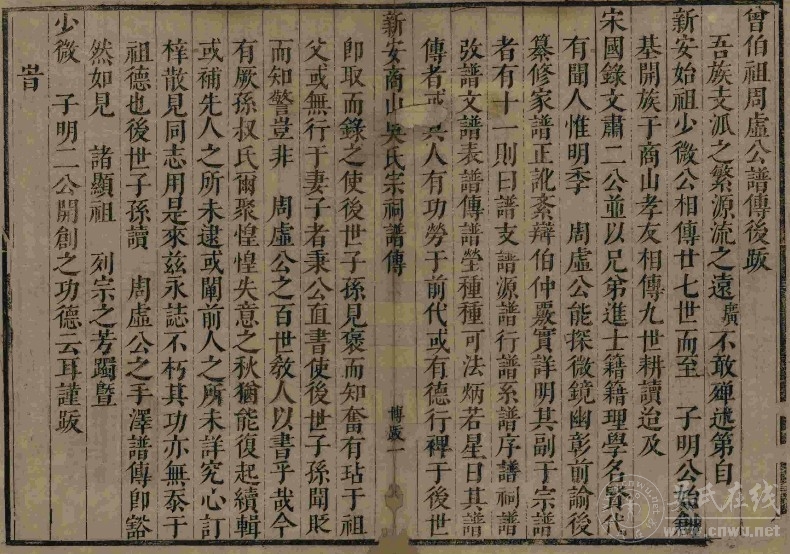 曾伯祖周虛公譜傳後跋
吾族支派之繁源流之遠廣不敢殫述第自
新安始祖少微公相傳廿七世而至 子明公始
基開族于商山孝友相傳九世耕讀迨及
宋國錄文肅二公並以兄弟進士籍籍理學名賢代
有聞人惟明季 周虛公能探微鏡幽彰前諭後
纂修家譜正訛紊辯伯仲覈實詳明其副于宗譜
者有十一則曰譜支譜源譜行譜系譜序譜祠譜
攷譜文譜表譜傳譜塋種種可法炳若星日其譜
傳者或其人有功勞于前代或有德行裨于後世
新安商山吳氏宗祠譜傳
傳跋一
即取而錄之使後世子孫見褒而知奮有玷于祖
父或無行于妻子者秉公直書使後世子孫聞貶
而知警豈非 周虛公之百世教人以書乎哉今
有厥孫叔氏爾聚惶惶失意之秋猶能復起續輯
或補先人之所未逮或闡前人之所未詳究心訂
梓散見同志用是來茲永誌不朽其功亦無忝于
祖德也後世子孫讀 周虛公之手澤譜傳即豁
然如見 諸顯祖 列宗之芳躅暨
少微 子明二公開創之功德云耳謹跋
吳氏在线
www.cnwu.net